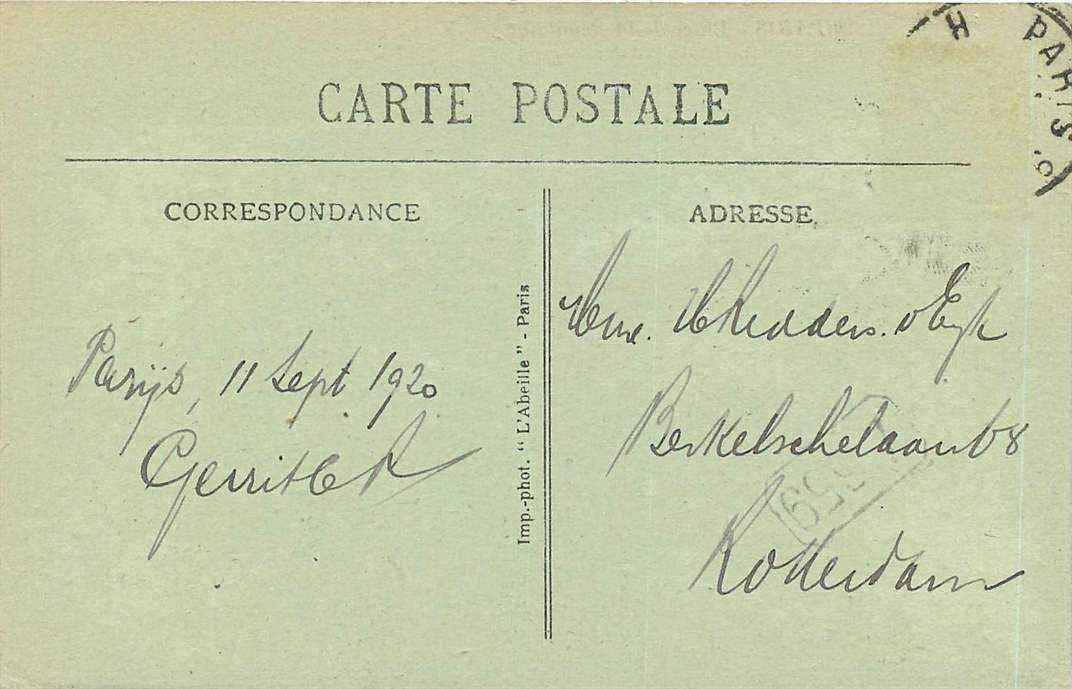 CARTE POSTALE
H PARIS 9
CORRESPONDANCE
Parijs, 11 Sept 1920
Gerrit
Imp.-phot. "L'Abeille" - Paris
ADRESSE
Mme. Kledders. v Eyk
Berkelschelaan 68
Rotterdam